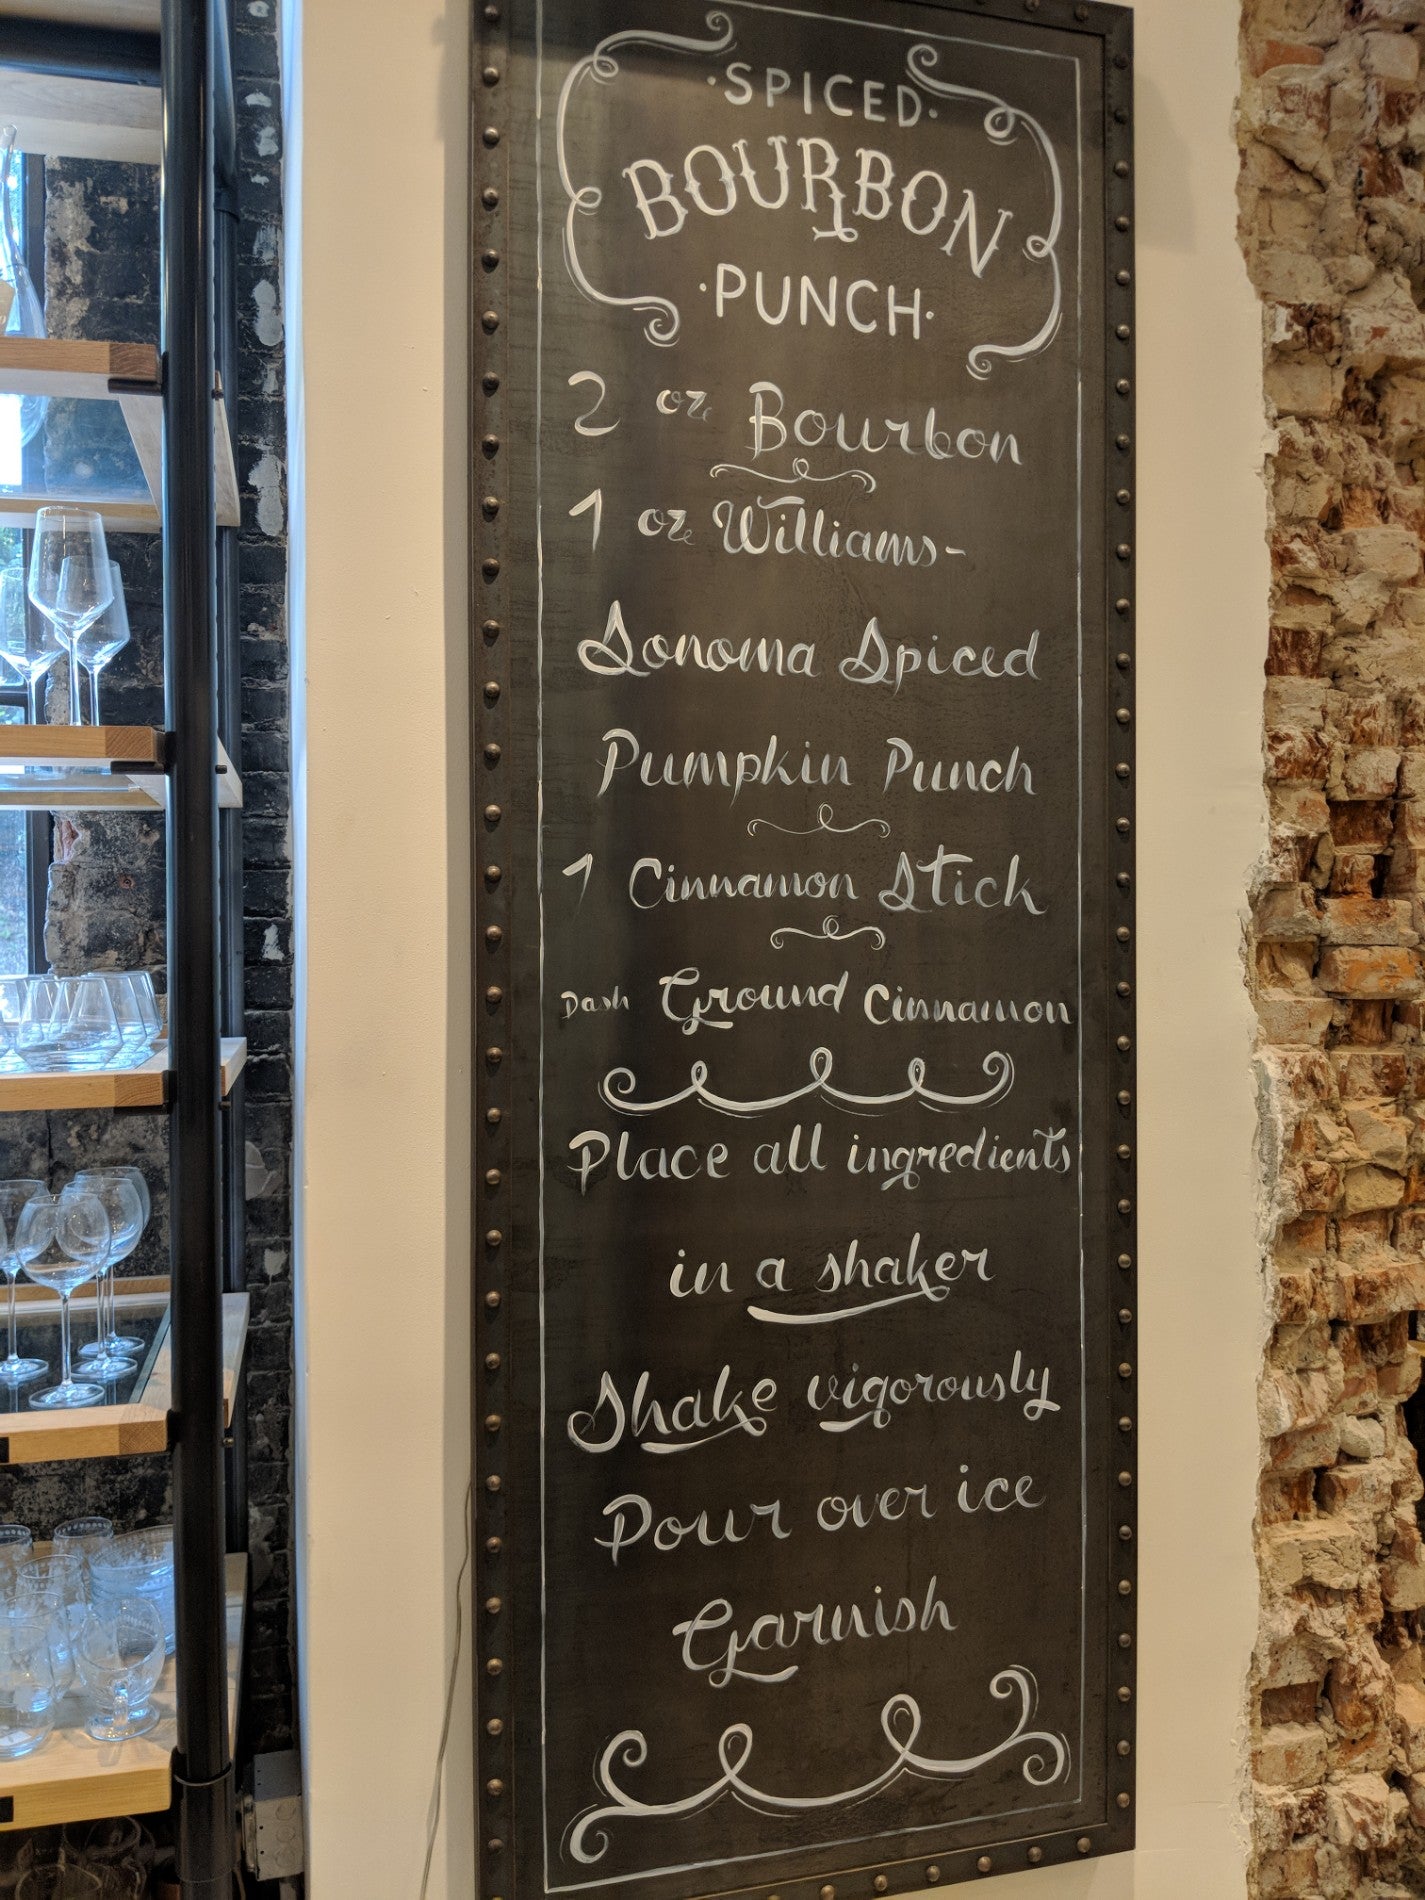 ·SPICED·
BOURBON
·PUNCH·
2 oz Bourbon
1 oz Williams-
Sonoma Spiced
Pumpkin Punch
1 Cinnamon Stick
Dash Ground Cinnamon
Place all ingredients
in a shaker
Shake vigorously
Pour over ice
Garnish